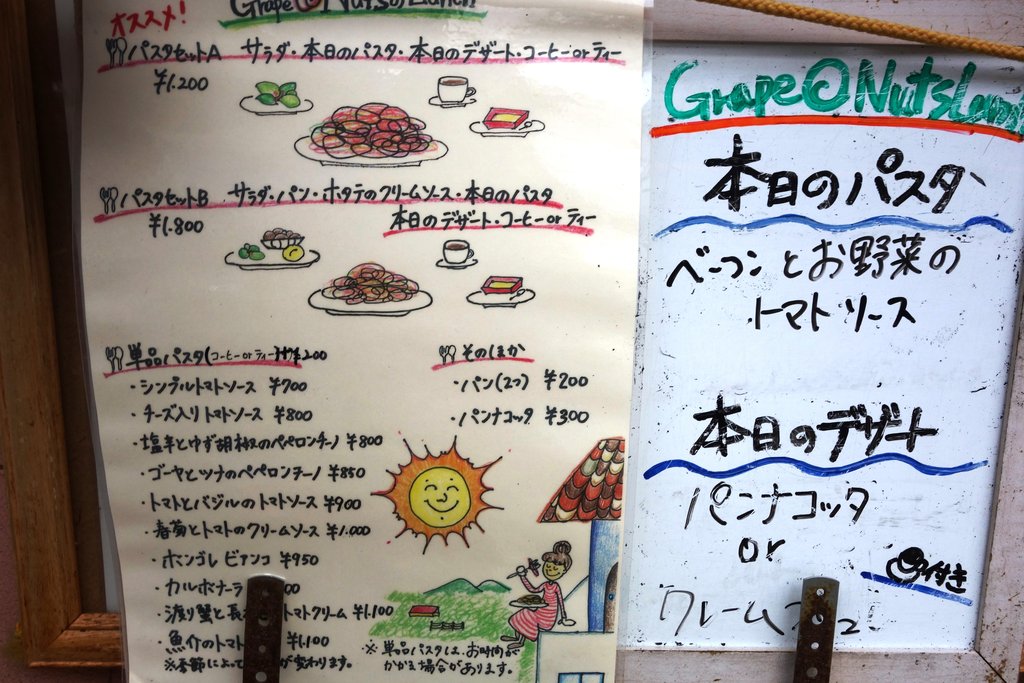 オススメ!
Grape Nuts Lunch
パスタセットA サラダ・本日のパスタ・本日のデザート・コーヒーorティー
¥1.200
パスタセットB サラダ・パン・ホタテのクリームソース・本日のパスタ
¥1.800 本日のデザート・コーヒーorティー
単品パスタ(コーヒーorティー)付¥200
・シンプルトマトソース ¥700
・チーズ入りトマトソース ¥800
・塩辛とゆず胡椒のペペロンチーノ ¥800
・ゴーヤとツナのペペロンチーノ ¥850
・トマトとバジルのトマトソース ¥900
・春菊とトマトのクリームソース ¥1.000
・ボンゴレビアンコ ¥950
・カルボナーラ 00
・渡り蟹と長 トマトクリーム ¥1,100
・魚介のトマト ¥1.100
※季節によって が変わります。
そのほか
・パン(2つ) ¥200
・パンナコッタ ¥300
※単品パスタは、お時間が
かかる場合があります。
Grape Nuts Lunch
本日のパスタ
ベーコンとお野菜の
トマトソース
本日のデザート
パンナコッタ
or
付き
クレーム